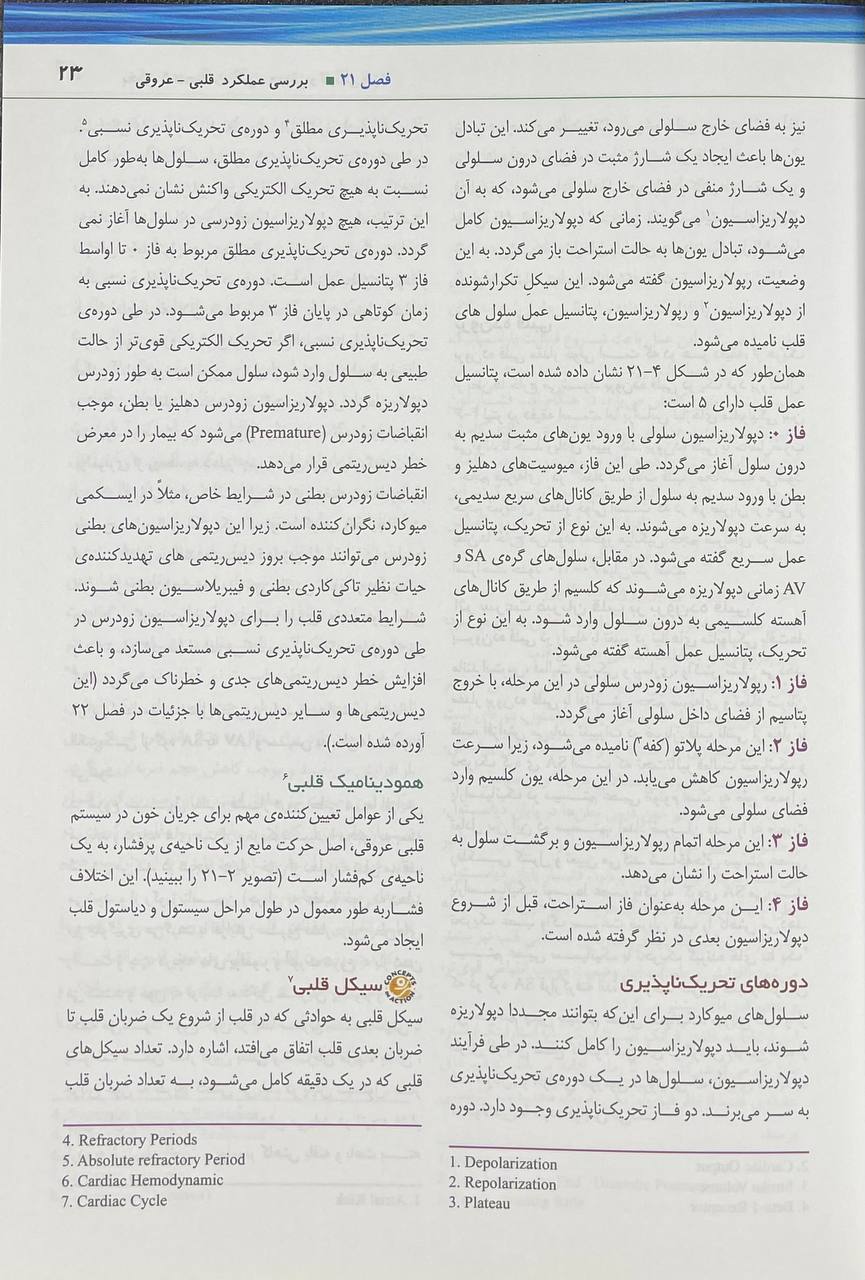 فصل ۲۱ ■ بررسی عملکرد قلبی - عروقی
۲۳
نیز به فضای خارج سلولی می‌رود، تغییر می‌کند. این تبادل
یون‌ها باعث ایجاد یک شارژ مثبت در فضای درون سلولی
و یک شارژ منفی در فضای خارج سلولی می‌شود، که به آن
دپولاریزاسیون۱ می‌گویند. زمانی که دپولاریزاسیون کامل
می‌شود، تبادل یون‌ها به حالت استراحت باز می‌گردد. به این
وضعیت، رپولاریزاسیون گفته می‌شود. این سیکلِ تکرارشونده
از دپولاریزاسیون۲ و رپولاریزاسیون، پتانسیل عمل سلول های
قلب نامیده می‌شود.
همان‌طور که در شکل ۴-۲۱ نشان داده شده است، پتانسیل
عمل قلب دارای ۵ است:
فاز ۰: دپولاریزاسیون سلولی با ورود یون‌های مثبت سدیم به
درون سلول آغاز می‌گردد. طی این فاز، میوسیت‌های دهلیز و
بطن با ورود سدیم به سلول از طریق کانال‌های سریع سدیمی،
به سرعت دپولاریزه می‌شوند. به این نوع از تحریک، پتانسیل
عمل سریع گفته می‌شود. در مقابل، سلول‌های گره‌ی SA و
AV زمانی دپولاریزه می‌شوند که کلسیم از طریق کانال‌های
آهسته کلسیمی به درون سلول وارد شود. به این نوع از
تحریک، پتانسیل عمل آهسته گفته می‌شود.
فاز ۱: رپولاریزاسیون زودرس سلولی در این مرحله، با خروج
پتاسیم از فضای داخل سلولی آغاز می‌گردد.
فاز ۲: این مرحله پلاتو (کفه۳) نامیده می‌شود، زیرا سرعت
رپولاریزاسیون کاهش می‌یابد. در این مرحله، یون کلسیم وارد
فضای سلولی می‌شود.
فاز ۳: این مرحله اتمام رپولاریزاسیون و برگشت سلول به
حالت استراحت را نشان می‌دهد.
فاز ۴: این مرحله به‌عنوان فاز استراحت، قبل از شروع
دپولاریزاسیون بعدی در نظر گرفته شده است.
دوره‌های تحریک‌ناپذیری
سلول‌های میوکارد برای این‌که بتوانند مجددا دپولاریزه
شوند، باید دپولاریزاسیون را کامل کنند. در طی فرآیند
دپولاریزاسیون، سلول‌ها در یک دوره‌ی تحریک‌ناپذیری
به سر می‌برند. دو فاز تحریک‌ناپذیری وجود دارد. دوره
1. Depolarization
2. Repolarization
3. Plateau
تحریک‌ناپذیری مطلق۴ و دوره‌ی تحریک‌ناپذیری نسبی۵.
در طی دوره‌ی تحریک‌ناپذیری مطلق، سلول‌ها به‌طور کامل
نسبت به هیچ تحریک الکتریکی واکنش نشان نمی‌دهند. به
این ترتیب، هیچ دپولاریزاسیون زودرسی در سلول‌ها آغاز نمی
گردد. دوره‌ی تحریک‌ناپذیری مطلق مربوط به فاز ۰ تا اواسط
فاز ۳ پتانسیل عمل است. دوره‌ی تحریک‌ناپذیری نسبی به
زمان کوتاهی در پایان فاز ۳ مربوط می‌شود. در طی دوره‌ی
تحریک‌ناپذیری نسبی، اگر تحریک الکتریکی قوی‌تر از حالت
طبیعی به سلول وارد شود، سلول ممکن است به طور زودرس
دپولاریزه گردد. دپولاریزاسیون زودرس دهلیز یا بطن، موجب
انقباضات زودرس (Premature) می‌شود که بیمار را در معرض
خطر دیس‌ریتمی قرار می‌دهد.
انقباضات زودرس بطنی در شرایط خاص، مثلاً در ایسکمی
میوکارد، نگران‌کننده است. زیرا این دپولاریزاسیون‌های بطنی
زودرس می‌توانند موجب بروز دیس‌ریتمی های تهدیدکننده‌ی
حیات نظیر تاکی‌کاردی بطنی و فیبریلاسیون بطنی شوند.
شرایط متعددی قلب را برای دپولاریزاسیون زودرس در
طی دوره‌ی تحریک‌ناپذیری نسبی مستعد می‌سازد، و باعث
افزایش خطر دیس‌ریتمی‌های جدی و خطرناک می‌گردد (این
دیس‌ریتمی‌ها و سایر دیس‌ریتمی‌ها با جزئیات در فصل ۲۲
آورده شده است.).
همودینامیک قلبی۶
یکی از عوامل تعیین‌کننده‌ی مهم برای جریان خون در سیستم
قلبی عروقی، اصل حرکت مایع از یک ناحیه‌ی پرفشار، به یک
ناحیه‌ی کم‌فشار است (تصویر ۲-۲۱ را ببینید). این اختلاف
فشاربه طور معمول در طول مراحل سیستول و دیاستول قلب
ایجاد می‌شود.
CONCEPTS in ACTION سیکل قلبی۷
سیکل قلبی به حوادثی که در قلب از شروع یک ضربان قلب تا
ضربان بعدی قلب اتفاق می‌افتد، اشاره دارد. تعداد سیکل‌های
قلبی که در یک دقیقه کامل می‌شود، به تعداد ضربان قلب
4. Refractory Periods
5. Absolute refractory Period
6. Cardiac Hemodynamic
7. Cardiac Cycle